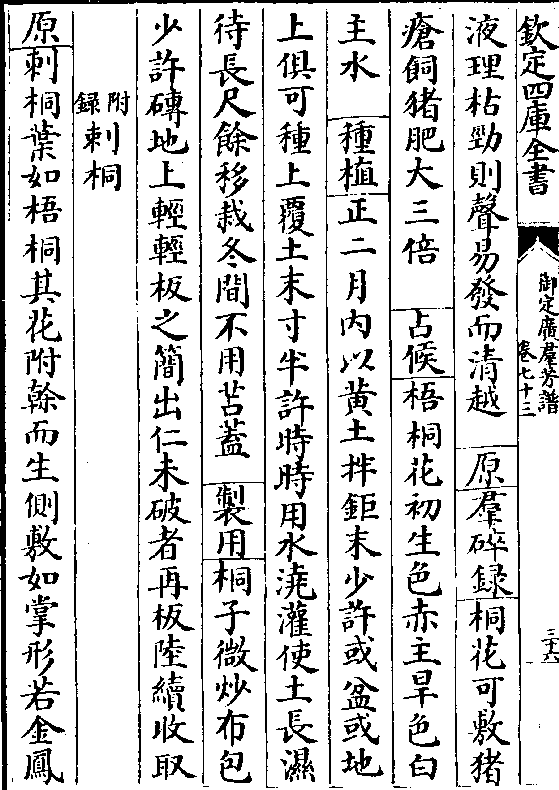 欽定四庫全書
御定廣羣芳譜
卷七十三
三十六
液理枯勁則聲易發而清越　原羣碎録桐花可敷猪
瘡飼猪肥大三倍　占候梧桐花初生色赤主旱色白
主水　種植正二月内以黄土拌鉅末少許或盆或地
上俱可種上覆土末寸半許時時用水澆灌使土長濕
待長尺餘移栽冬間不用苫蓋　製用桐子微炒布包
少許磚地上輕輕板之簡出仁未破者再板陸續收取
附録刺桐
原刺桐葉如梧桐其花附榦而生側敷如掌形若金鳳